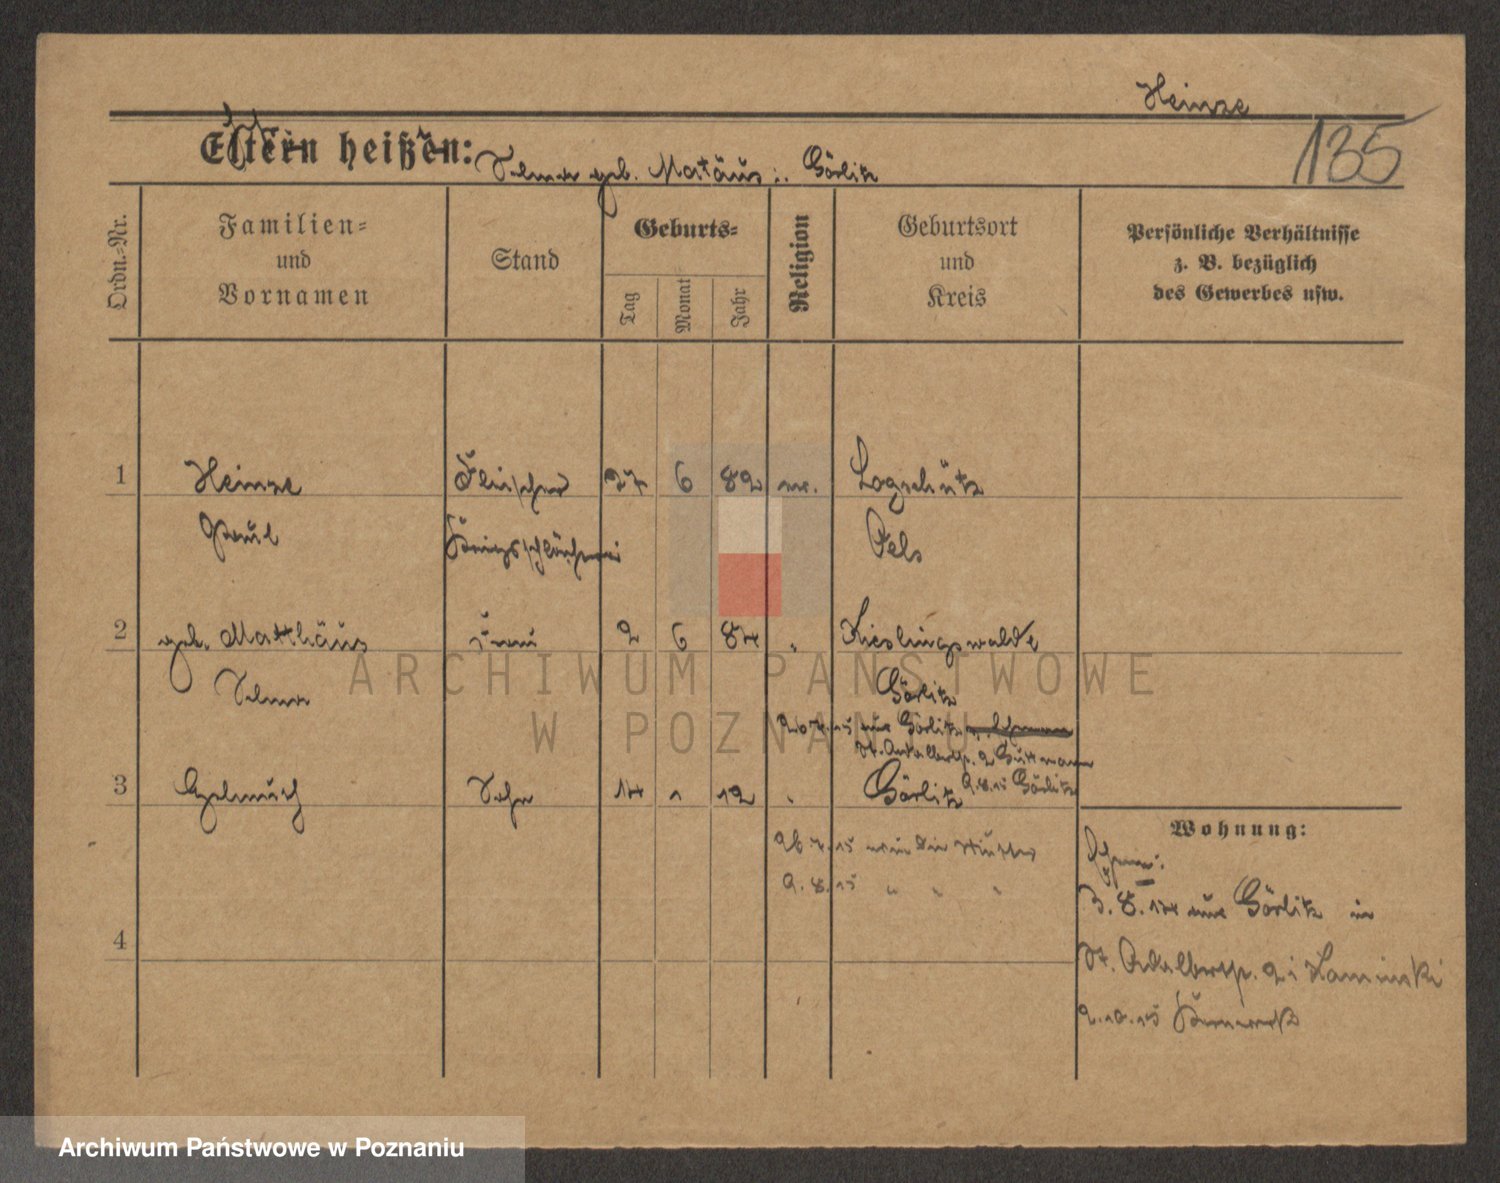 Heinze
135
Eltern heißen:
Selma geb. Matäus i. Görlitz
Ordn.-Nr.
Familien-
und
Vornamen
Stand
Geburts-
Tag
Monat
Jahr
Religion
Geburtsort
und
Kreis
Persönliche Verhältnisse
z. B. bezüglich
des Gewerbes usw.
1 Heinze Fleischer 27 6 82 ev. Logschütz
Paul Oels
2 geb. Matthäus Frau 2 6 84 " Kieslingswalde
Selma Görlitz
aus Görlitz
St. Adalbertstr. 2 Guttmann
3 Helmuth Sohn 14 1 12 " Görlitz 9.8.15 Görlitz
Wohnung:
26.7.15 wie die Mutter
9.8.15 " " "
3.8.14 aus Görlitz in
4
St. Adalbertstr. 2 i Kaminski
2.10.15
ARCHIWUM PAŃSTWOWE
W POZNANIU
Archiwum Państwowe w Poznaniu